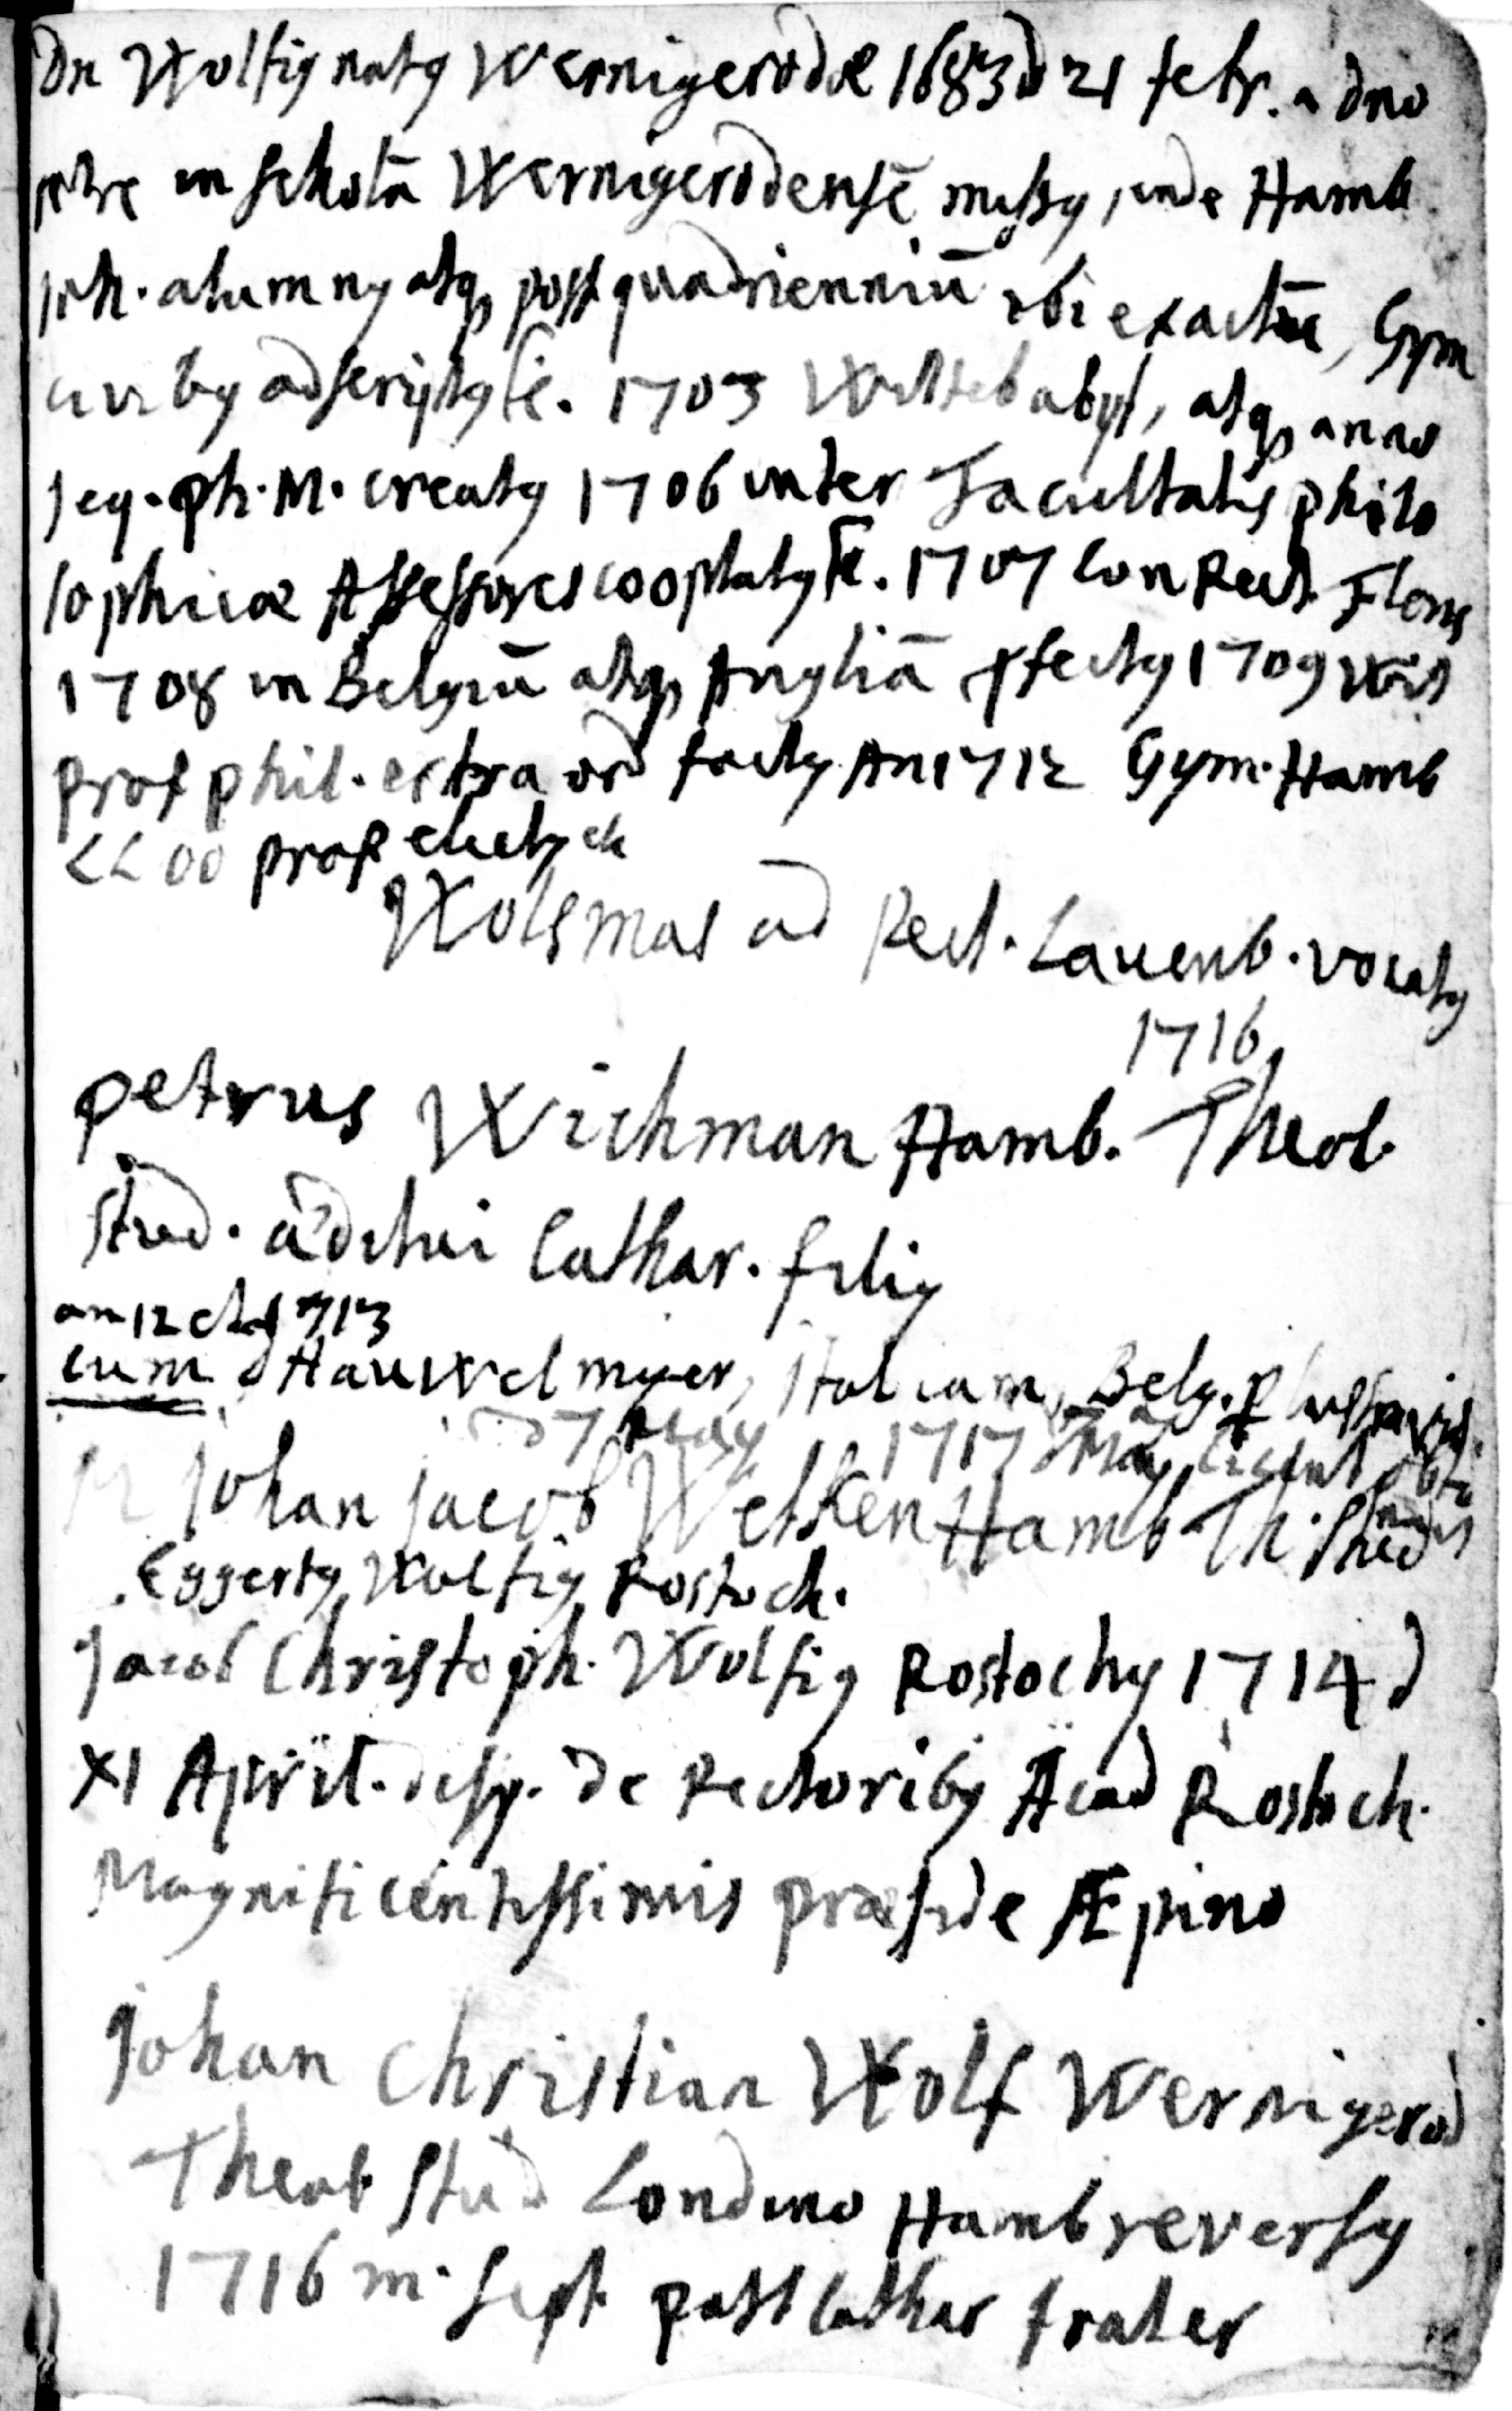 Dn Wolfig natg Wernigerodæ 1683 d 21 febr. a dno
ptre in scholā Wernigerodensē missg, inde Hamb
joh. alumng atq post quadrienniū ibi exactū, Gym
civibg adscriptg ē. 1703 Witteb abyt, atq anno
seq. ph. M. creatg 1706 inter Facultatis philo
sophicæ Assessores cooptatg ē. 1707 ConRect. Flens
1708 in Belgiū atq Angliā pfectg 1709 Wit
prof phil. extra ord factg An 1712 Gym. Hamb
LL OO prof electg
Wolf mas ad Rect. Lauenb. vocatg
1716
petrus Wichman Hamb. Theol.
stud. æditui Cathar. filig
1713
cum Italiam, Belg.
7 May 1717
Johan Jacob Wetken Hamb Th. Stud
Eggertg Wolfig Rostoch.
Jacob Christoph. Wolfig Rostochg 1714 d
XI April. disp. de Rectoribg Acad Rostoch.
Magnificentissimis præside Æpino
Johan Christian Wolf Wernigerod
Theol. Stud Londino Hamb reversg
1716 m. Sept. past Cathar frater